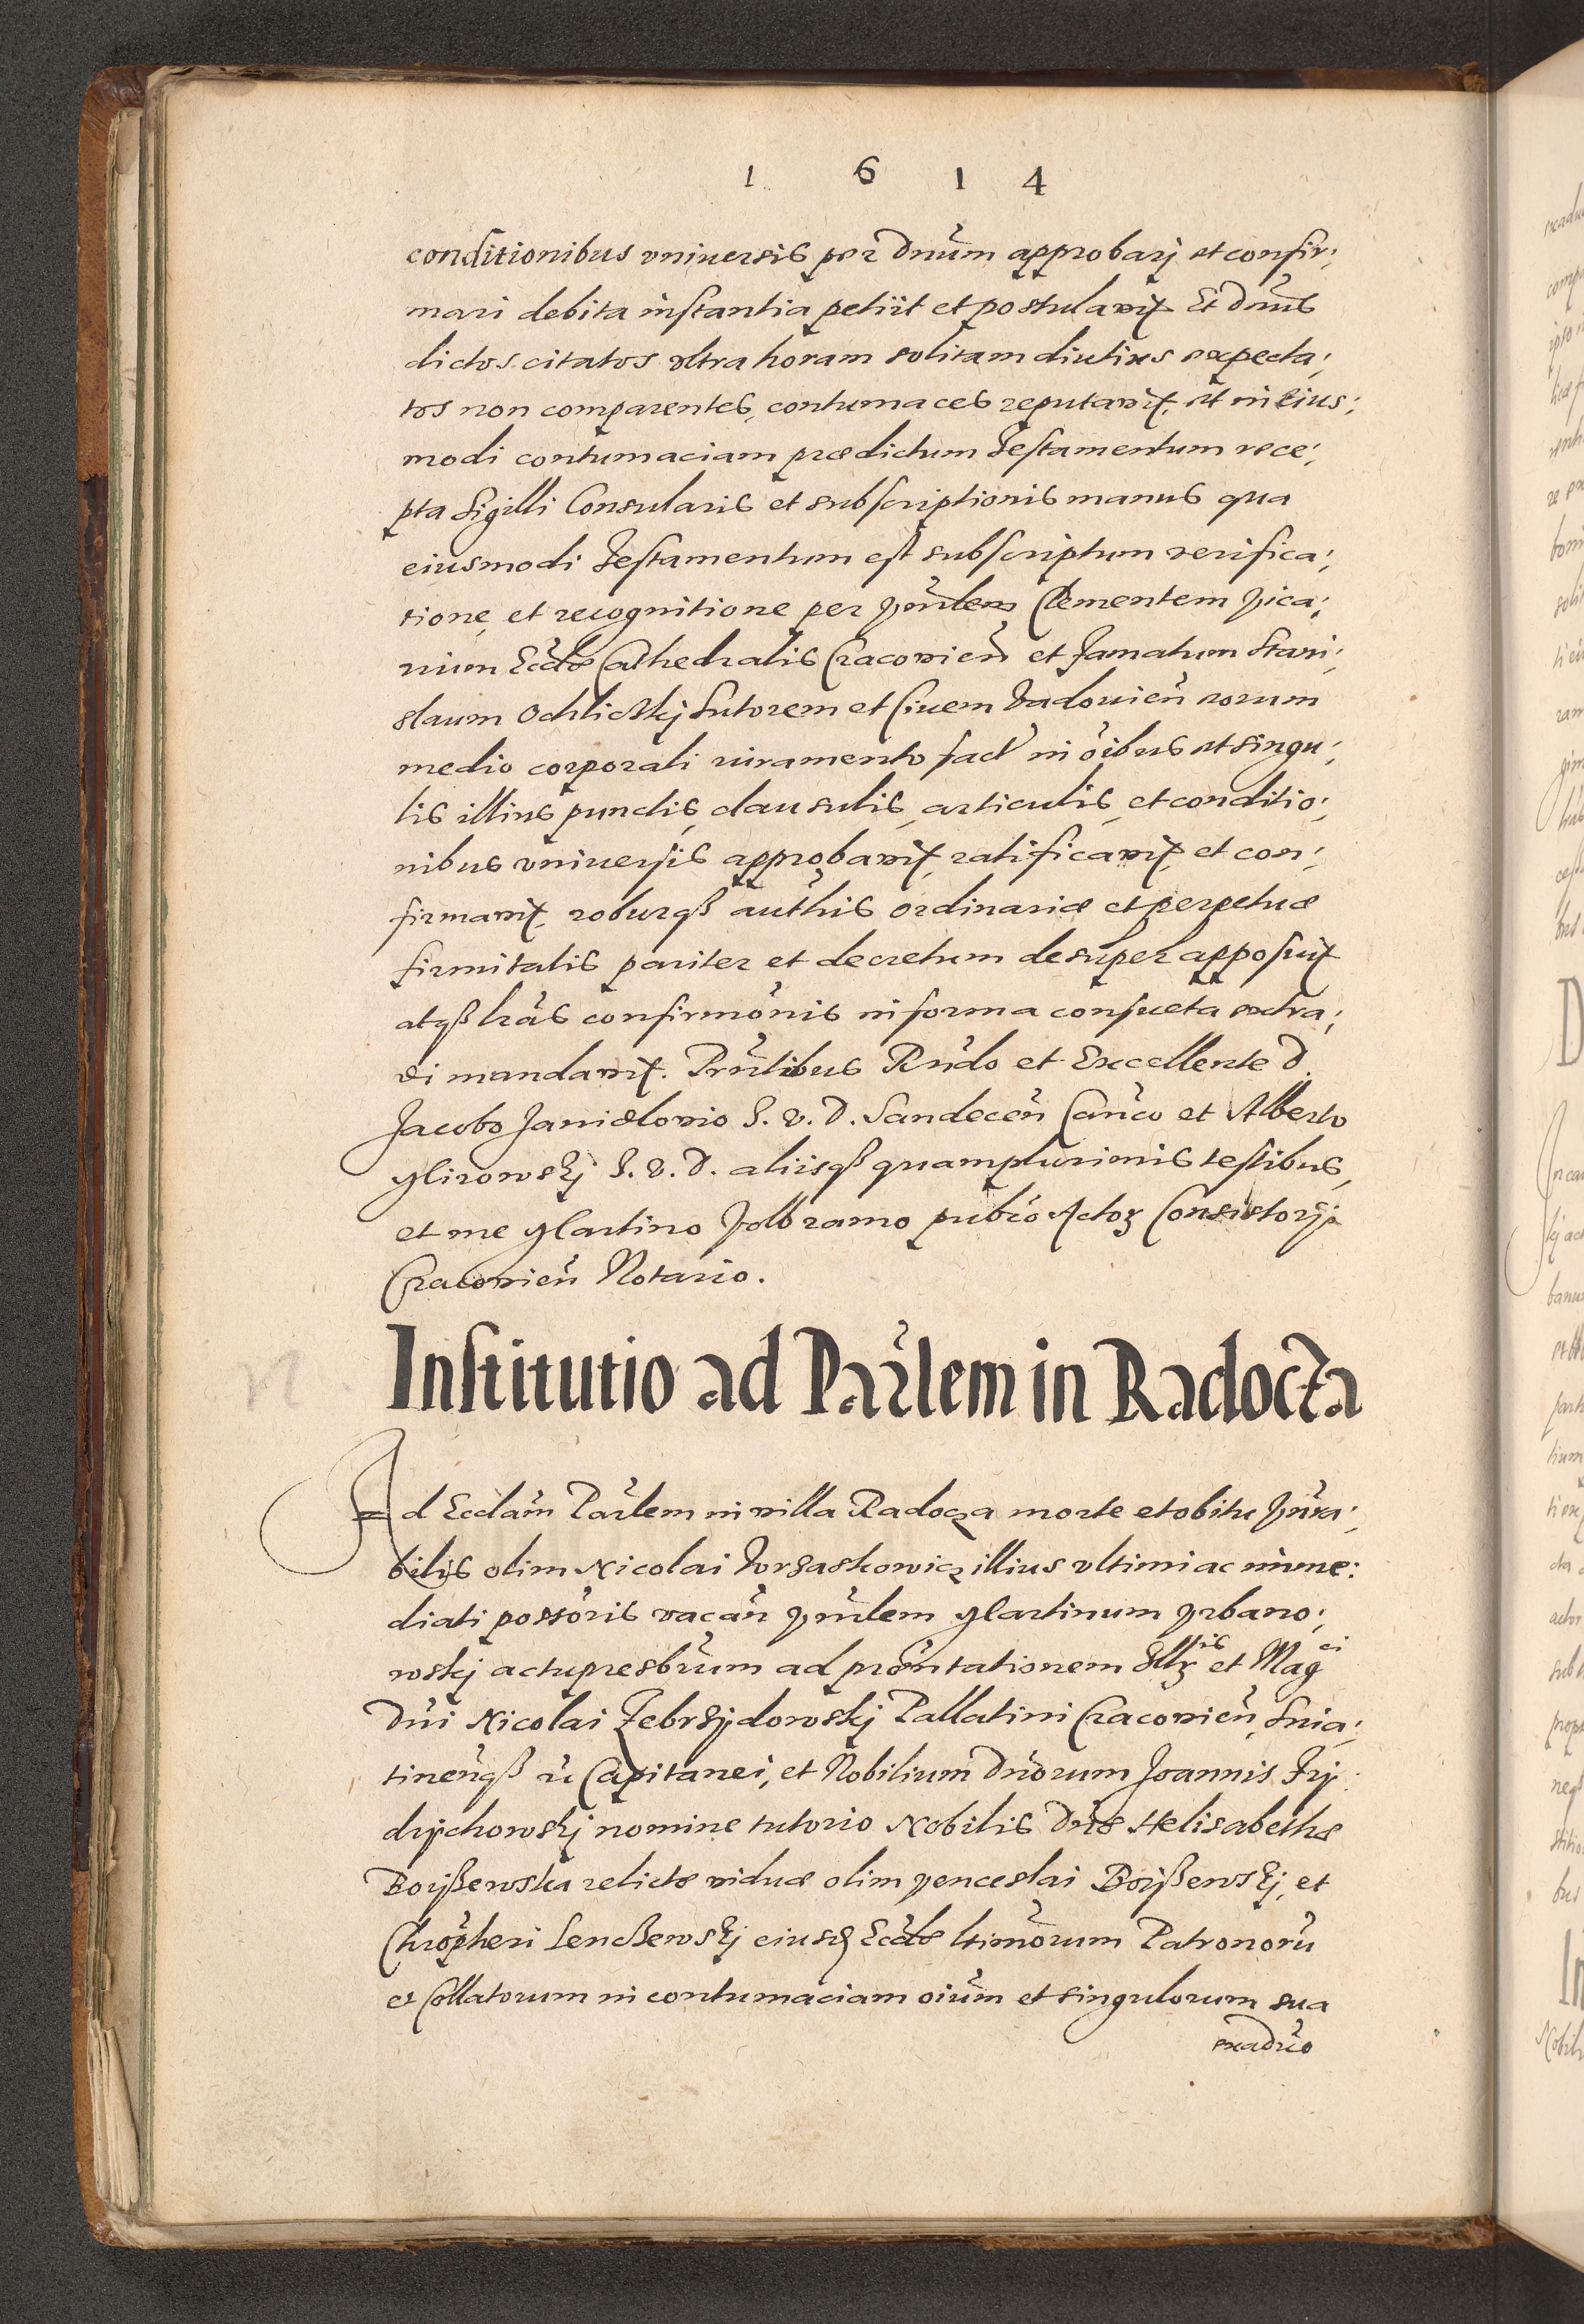 1 6 1 4
conditionibus vniuersis per Dnūm approbarj et confir;
mari debita instantia petiit et postulauit. Et Dnūs
dictos citatos vltra horam solitam diutius expecta;
tos non comparentes, contumaces reputauit, et in eius;
modi contumaciam prædictum Testamentum rece;
pta Sigilli Consularis et subscriptionis manus qua
eiusmodi Testamentum est subscriptum verifica;
tione, et recognitione per Vnūlem Clementem Vica;
rium Eccłæ Cathedralis Cracouień et famatum Stani;
slaum Ochlickj Sutorem et Ciuem Vadouień eorum
medio corporali iuramento fact̄ in oībus et singu;
lis illius punctis, clausulis, articulis, et conditio;
nibus vniuersis approbauit, ratificauit, et con;
firmauit, roburqȝ autħis ordinariæ et perpetuæ
firmitatis pariter et decretum desuper apposuit
atqȝ lrās confirmōnis in forma consueta extra;
di mandauit. Prntībus Rndo et Excellente D.
Jacobo Janidlouio I. V. D. Sandeceń Canco et Alberto
Mirowskj I. V. D. aliisqȝ quamplurimis testibus,
et me Martino Volbramo pubco Actoꝝ Consistorij
Cracouień Notario.
Institutio ad Parlem in Radocza
Ad Eccłam Parlem in villa Radocza morte et obitu Vnīra;
bilis olim Nicolai Torzaskowicz illius vltimi ac imme:
diati possōris vacań Vnūlem Martinum Vrbano;
wskj actupresbrum ad prōntationem Illꝝis et Magci
Dnī Nicolai Zebrzÿdowskj Pallatini Cracouień, Snia;
tineńqȝ &c Capitanei, et Nobilium Dnōrum Joannis Frÿ
drÿchowskj nomine tutorio Nobilis Dnæ Helisabethæ
Boÿßewska relictæ viduæ olim Venceslai Boÿßewskj, et
Chrōpheri Lenczewskj eiusdꝫ Eccłæ ltīmorum Patronorū
et Collatorum in contumaciam oīum et singulorum sua